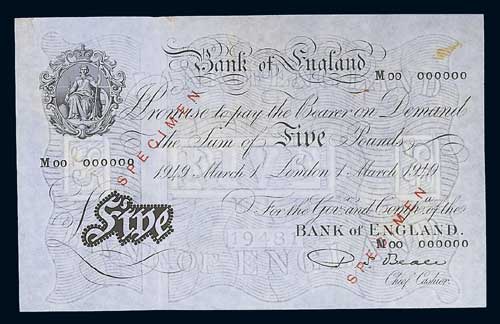 Bank of England
M00 000000
I Promise to pay the Bearer on Demand
the Sum of Five Pounds
M00 000000
1949 March 1 London 1 March 1949
For the Gov.r and Comp.a of the
Five
BANK of ENGLAND.
M00 000000
Chief Cashier.
SPECIMEN
SPECIMEN